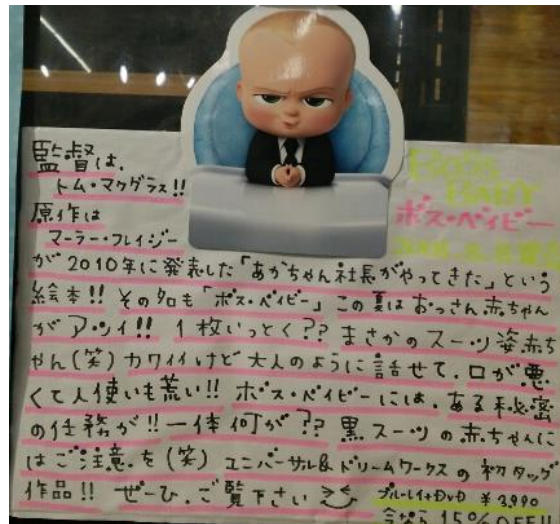 監督は、
トム・マクグラス!!
原作は
マーラー・フレイジー
BOSS
BABY
ボス・ベイビー
が2010年に発表した「あかちゃん社長がやってきた」という
絵本!! その名も「ボス・ベイビー」この夏はおっさん赤ちゃん
がアツイ!! 1枚いっとく?? まさかのスーツ姿赤ち
ゃん(笑)カワイイけど大人のように話せて、口が悪
くて人使いも荒い!! ボス・ベイビーには、ある秘密
の任務が!! 一体何が?? 黒スーツの赤ちゃんに
はご注意を(笑) ユニバーサル&ドリームワークスの初タッグ
作品!! ぜーひ、ご覧下さい
ブルーレイ+DVD ¥3,990
今なら15%OFF!!